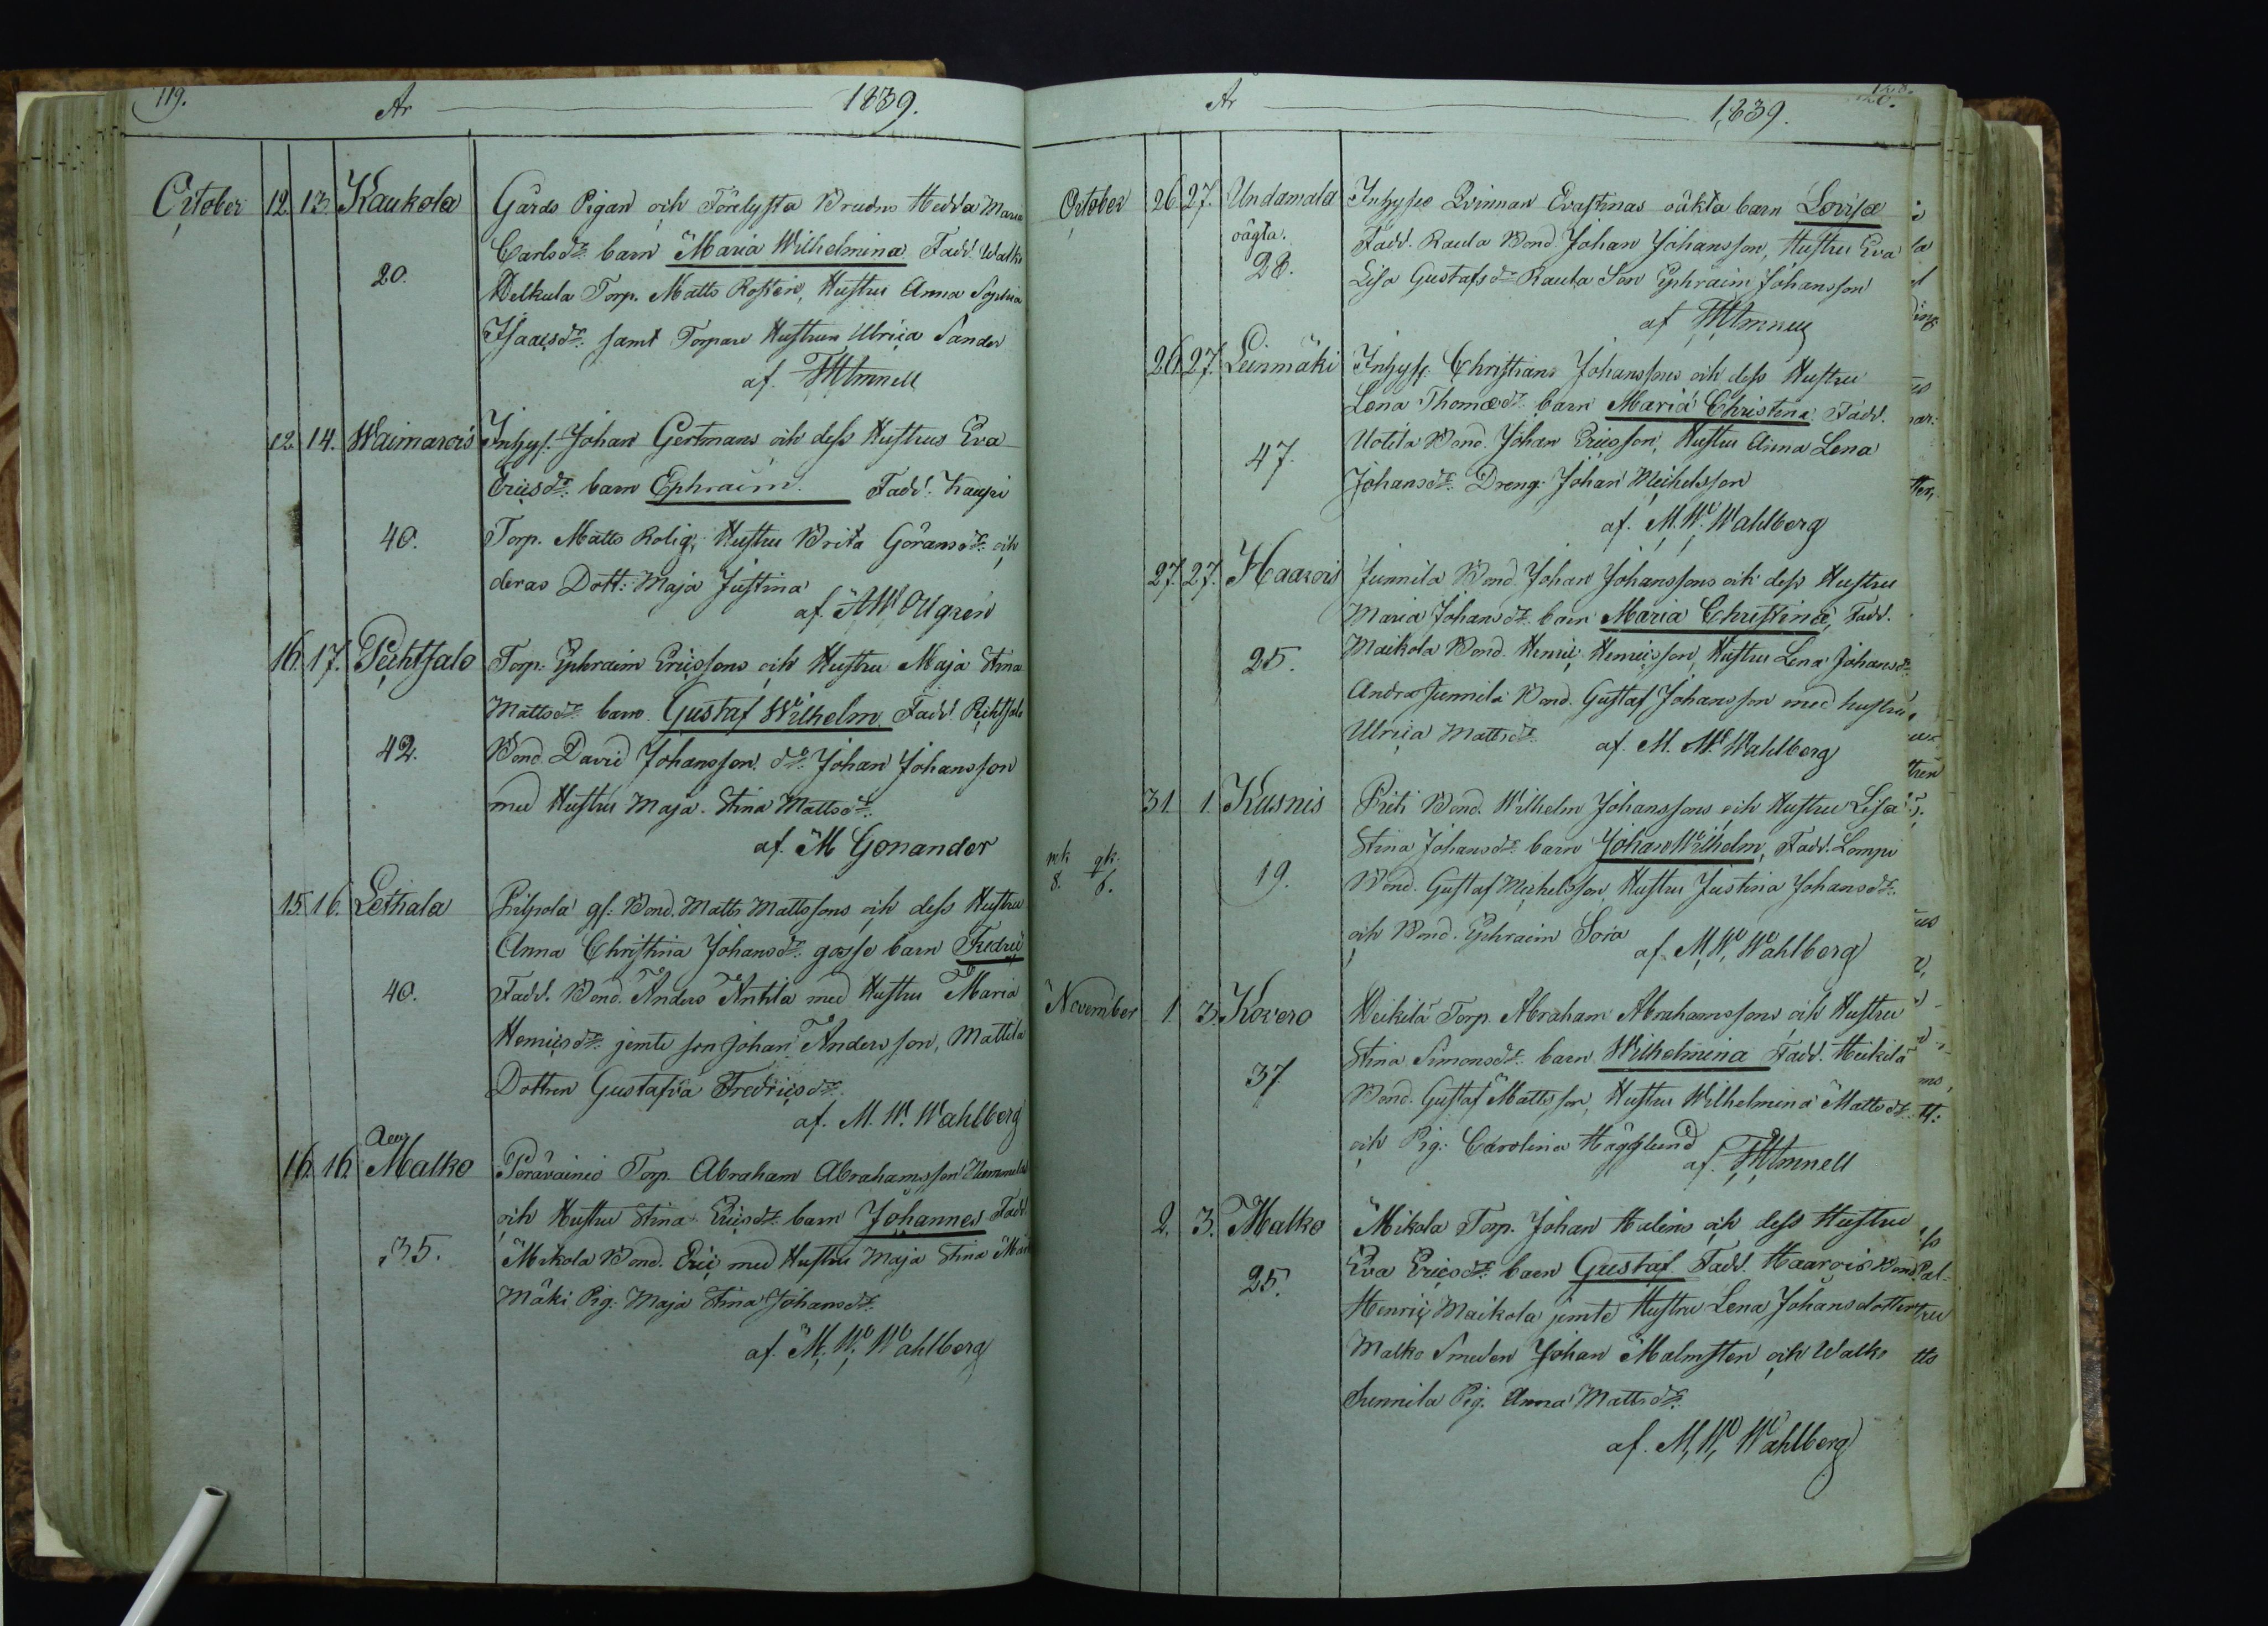 119.
År 1839.
October 12. 13. Kaukola Gårds Pigan och Förelysta Bruden Hedda Maria
Carlsdr. barn Maria Wilhelmina Fadd. Walko
20.
Torp. Matts Rosten, Hustru Anna Sophia
Isaacsdr. samt Torpare Hustrun Ulrica Sander
af.
12. 14. Waimarois Inhys. Johan Gertmans och dess Hustrus Eva
Ericsdr. barn Ephraim. Fadd. Kaupi
40.
Torp. Matts Rolig, Hustru Brita Göransdr. och
deras Dott: Maja Justina
af. Ollgren
16. 17. Torp. Ephraim Ericssons och Hustru Maja Stina
Mattsdr. barn Gustaf Wilhelm Fadd.
42.
Bond. David Johansson. do. Johan Johansson
med Hustru Maja Stina Mattsdr.
af. M Gonander
15. 16. Lethala Pilpola gf. Bond. Matts Mattssons och dess Hustru
Anna Christina Johansdr. gosse barn Fredric
40.
Fadd. Bond. Anders Antila med Hustru Maria
Henricsdr. jemte son Johan Andersson, Mattila
Dottren Gustafva Fredricsdr.
af. M. W. Wahlberg
16. 16. Malko Torp. Abraham Abrahamsson
och Hustru Stina Ericsdr. barn Johannes Fadd
35.
Mikola Bond. Eric med Hustru Maja Stina
Mäki Pig. Maja Stina Johansdr.
af. M. W. Wahlberg
120.
År 1839.
October 26. 27. Undamala Inhyses Qvinnan Evastinas oäkta barn Lovisa
oägta.
Fadd. Rauta Bond. Johan Johansson, Hustru Eva
28.
Lisa Gustafsdr. Rauta Son Ephraim Johansson
af
26. 27. Leinmäki Inhys. Christians Johanssons och dess Hustru
Lena Thomædr. barn Maria Christina Fadd.
47.
Uotila Bond. Johan Ericsson, Hustru Anna Lena
Johansdr. Dreng. Johan Michelsson
af. M. W. Wahlberg
27. 27. Haarois Junnila Bond. Johan Johanssons och dess Hustru
Maria Johansdr. barn Maria Christina, Fadd.
25.
Maikola Bond. Henric Henricsson, Hustru Lena Johansdr.
Andra Junnila Bond. Gustaf Johansson med hustru
Ulrica Mattsdr. af. M. W. Wahlberg
31. 1. Kusnis Priti Bond. Wilhelm Johanssons och Hustru Lisa
Stina Johansdr. barn Johan Wilhelm, Fadd. Lompi
mk. qk.
8. 6.
19.
Bond. Gustaf Michelsson, Hustru Justina Johansdr.
och Bond. Ephraim Sora
af. M. W. Wahlberg
November 1. 3. Kovero Heikilä Torp. Abraham Abrahamssons och Hustru
Stina Simonsdr. barn Wilhelmina Fadd. Heikilä
37.
Bond. Gustaf Mattsson, Hustru Wilhelmina Mattsdr.
och Pig. Carolina Hägglund
af.
2. 3. Malko Mikola Torp. Johan Malins och dess Hustru
Eva Ericsdr. barn Gustaf Fadd. Haarois Bond
25.
Henric Maikola jemte Hustru Lena Johansdotter
Malko Smeden Johan Malmsten och Walko
Junnila Pig. Anna Mattsdr.
af. M. W. Wahlberg